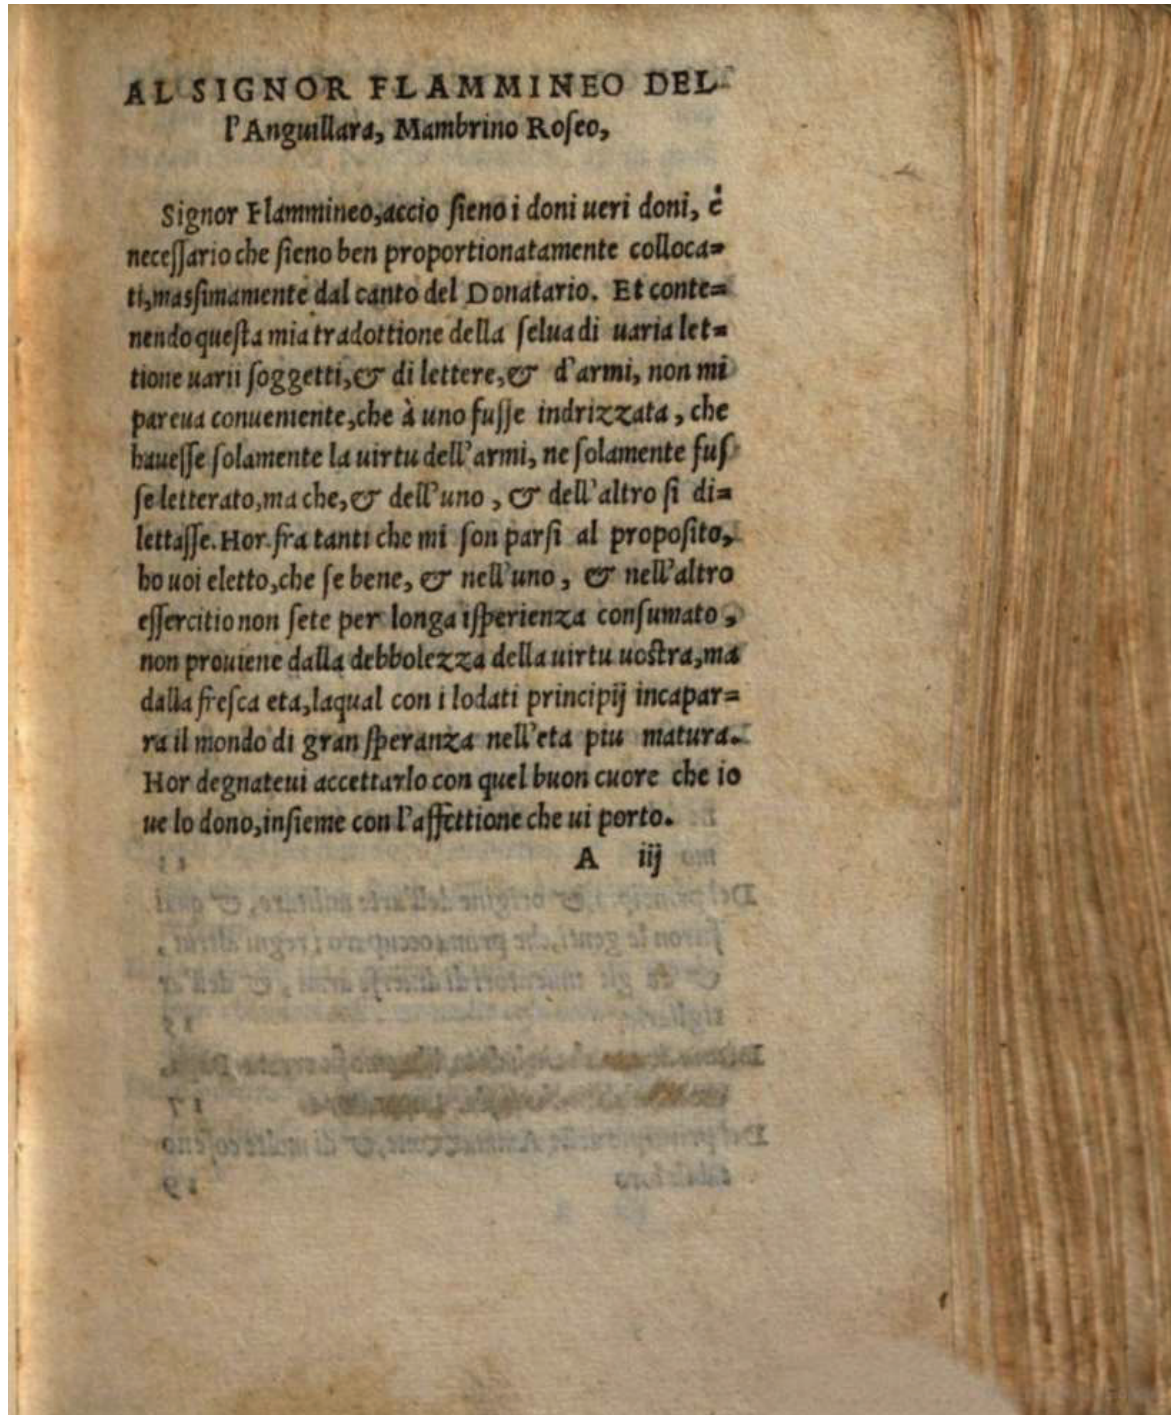 AL SIGNOR FLAMMINEO DEL
l'Anguillara, Mambrino Roseo,
Signor Flammineo, accio sieno i doni ueri doni, è
necessario che sieno ben proportionatamente colloca=
ti, massimamente dal canto del Donatario. Et conte=
nendo questa mia tradottione della selua di uaria let=
tione uarii soggetti, & di lettere, & d'armi, non mi
pareua conueniente, che à uno fusse indrizzata, che
hauesse solamente la uirtu dell'armi, ne solamente fus
se letterato, ma che, & dell'uno, & dell'altro si di=
lettasse. Hor fra tanti che mi son parsi al proposito,
ho uoi eletto, che se bene, & nell'uno, & nell'altro
essercitio non sete per longa isperienza consumato,
non prouiene dalla debbolezza della uirtu uostra, ma
dalla fresca eta, laqual con i lodati principij incapar=
ra il mondo di gran speranza nell'eta piu matura.
Hor degnateui accettarlo con quel buon cuore che io
ue lo dono, insieme con l'affettione che ui porto.
A iij